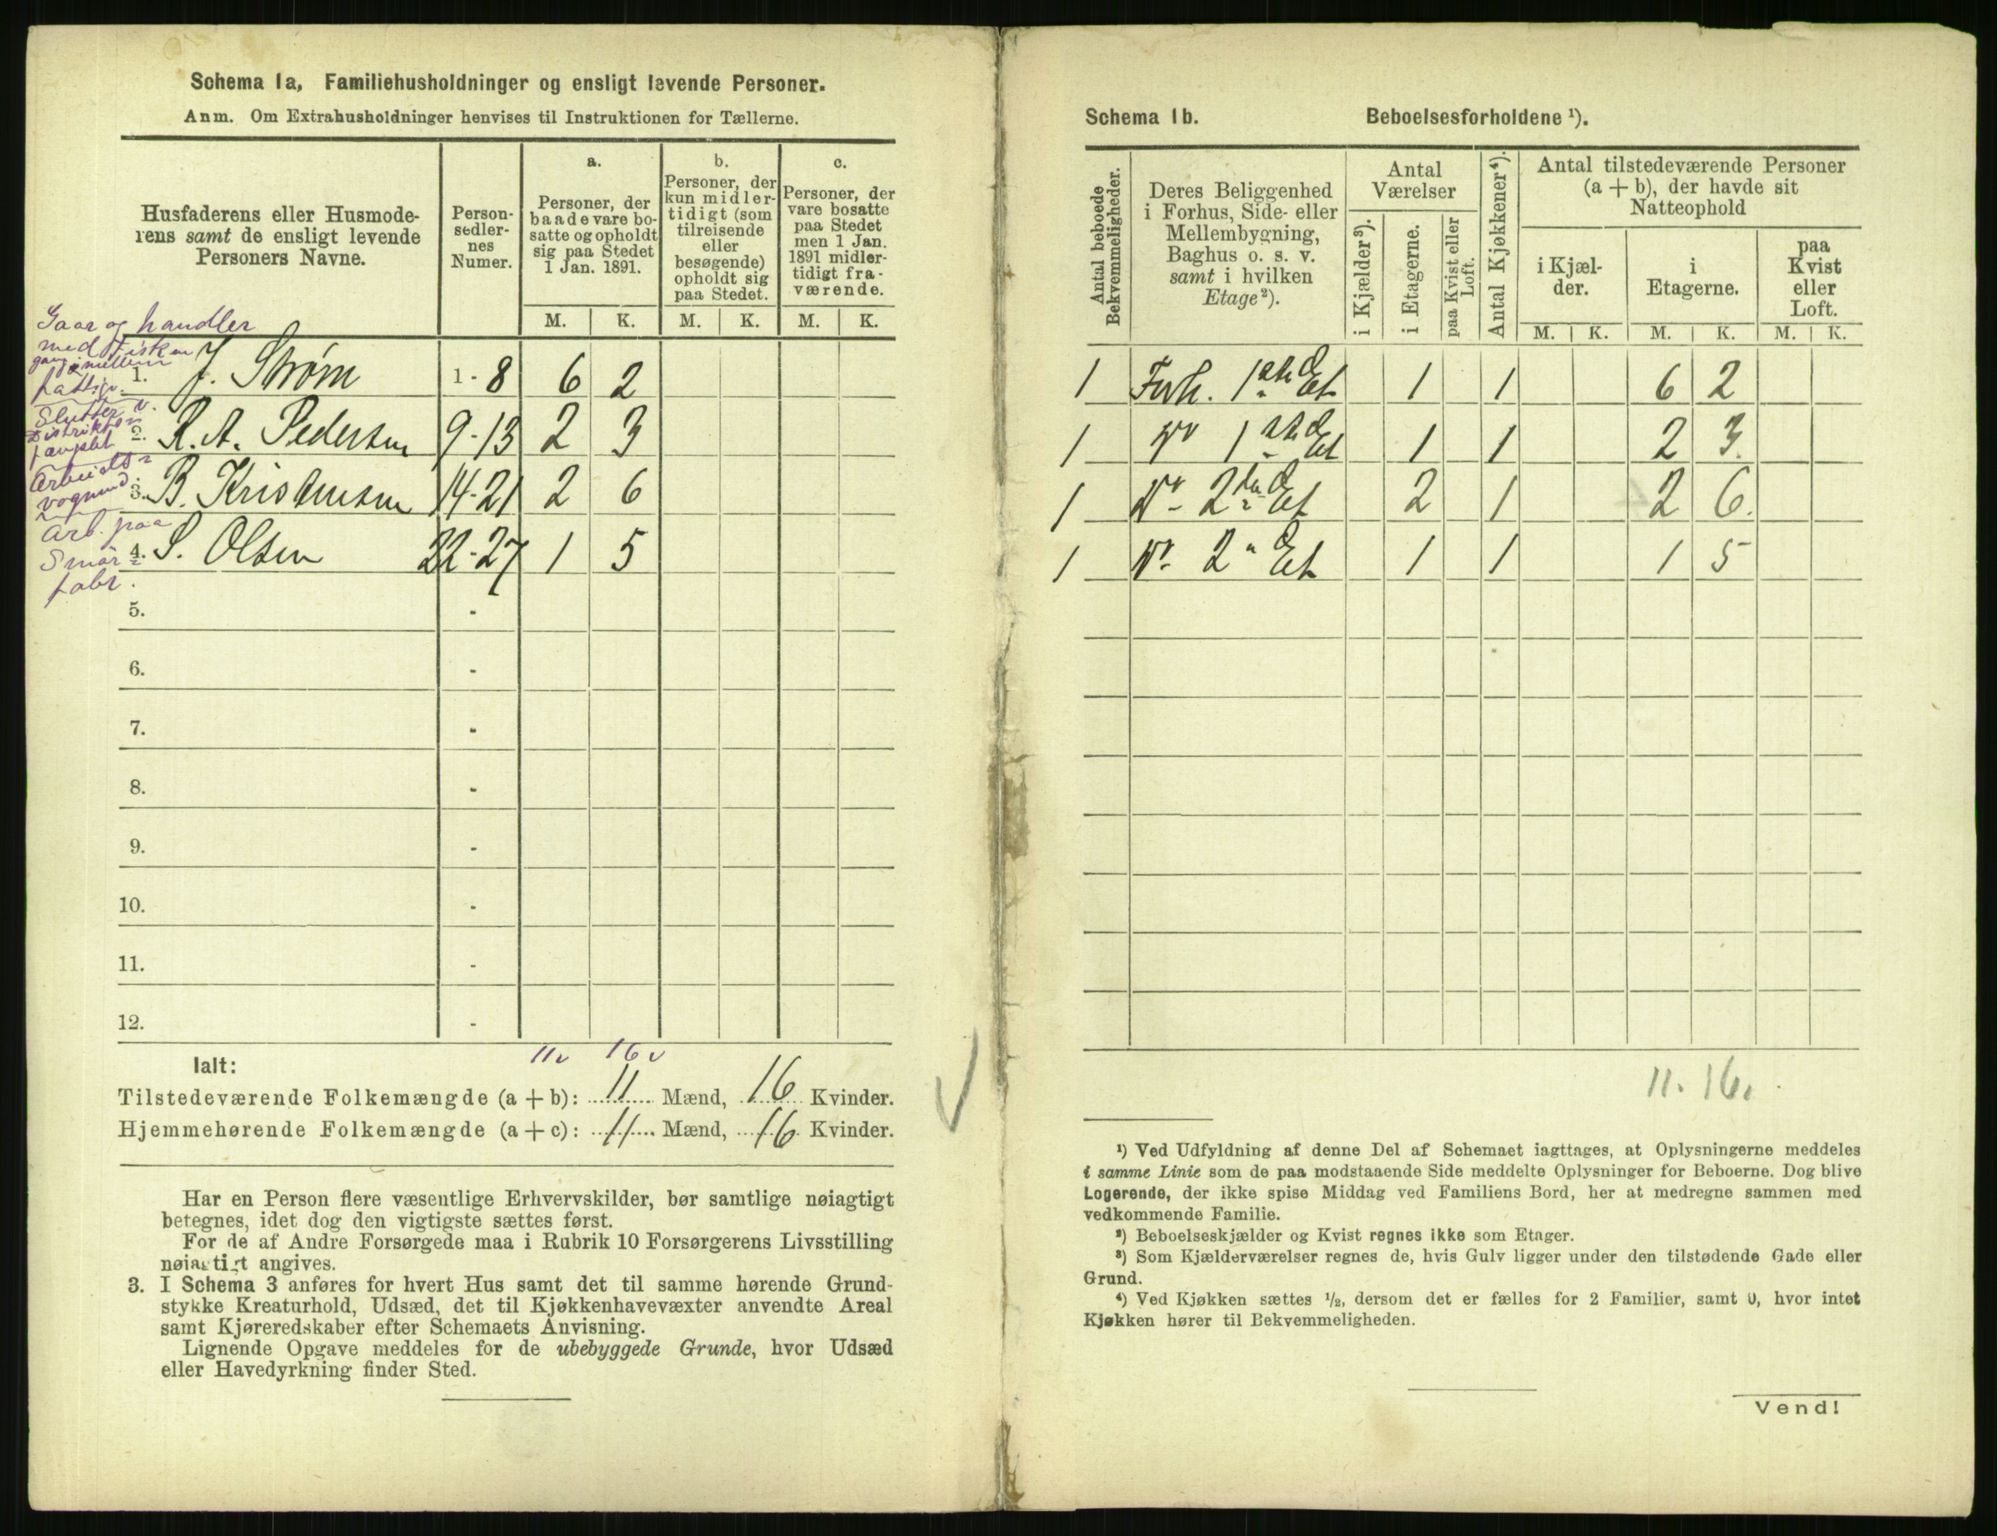 Schema 1a, Familiehusholdninger og ensligt levende Personer.
Anm. Om Extrahusholdninger henvises til Instruktionen for Tællerne.
Husfaderens eller Husmode-
rens samt de ensligt levende
Personers Navne.
Person-
sedler-
nes
Numer.
a.
Personer, der
baade vare bo-
satte og opholdt
sig paa Stedet
1 Jan. 1891.
b.
Personer, der
kun midler-
tidigt (som
tilreisende
eller
besøgende)
opholdt sig
paa Stedet.
c.
Personer, der
vare bosatte
paa Stedet
men 1 Jan.
1891 midler-
tidigt fra-
værende.
M. K. M. K. M. K.
Gaar og handler
med Fisken
imellem
fattig.
1. J. Strøm 1 - 8 6 2
Slutter v.
Distrikts
fængslet
2. R. A. Pedersen 9 - 13 2 3
Arbeids
vognmd.
3. B. Kristensen 14 - 21 2 6
Arb. paa
Smør
fabr.
4. S. Olsen 22 - 27 1 5
5. -
6. -
7. -
8. -
9. -
10. -
11. -
12. -
11v 16v
Ialt:
Tilstedeværende Folkemængde (a + b): 11 Mænd, 16 Kvinder.
Hjemmehørende Folkemængde (a + c): 11 Mænd, 16 Kvinder.
Har en Person flere væsentlige Erhvervskilder, bør samtlige nøiagtigt
betegnes, idet dog den vigtigste sættes først.
For de af Andre Forsørgede maa i Rubrik 10 Forsørgerens Livsstilling
nøiagtigt angives.
3. I Schema 3 anføres for hvert Hus samt det til samme hørende Grund-
stykke Kreaturhold, Udsæd, det til Kjøkkenhavevæxter anvendte Areal
samt Kjøreredskaber efter Schemaets Anvisning.
Lignende Opgave meddeles for de ubebyggede Grunde, hvor Udsæd
eller Havedyrkning finder Sted.
Schema 1b. Beboelsesforholdene ¹).
Antal beboede
Bekvemmeligheder.
Deres Beliggenhed
i Forhus, Side- eller
Mellembygning,
Baghus o. s. v.
samt i hvilken
Etage ²).
Antal
Værelser
i Kjælder ³).
i Etagerne.
paa Kvist eller
Loft.
Antal Kjøkkener ⁴).
Antal tilstedeværende Personer
(a + b), der havde sit
Natteophold
i Kjæl-
der.
i
Etagerne.
paa
Kvist
eller
Loft.
M. K. M. K. M. K.
1 Forh. 1ste Et 1 1 6 2
1 1ste Et 1 1 2 3.
1 2den Et 2 1 2 6.
1 2" Et 1 1 1 5
11. 16.
¹) Ved Udfyldning af denne Del af Schemaet iagttages, at Oplysningerne meddeles
i samme Linie som de paa modstaaende Side meddelte Oplysninger for Beboerne. Dog blive
Logerende, der ikke spise Middag ved Familiens Bord, her at medregne sammen med
vedkommende Familie.
²) Beboelseskjælder og Kvist regnes ikke som Etager.
³) Som Kjælderværelser regnes de, hvis Gulv ligger under den tilstødende Gade eller
Grund.
⁴) Ved Kjøkken sættes ½, dersom det er fælles for 2 Familier, samt 0, hvor intet
Kjøkken hører til Bekvemmeligheden.
Vend!